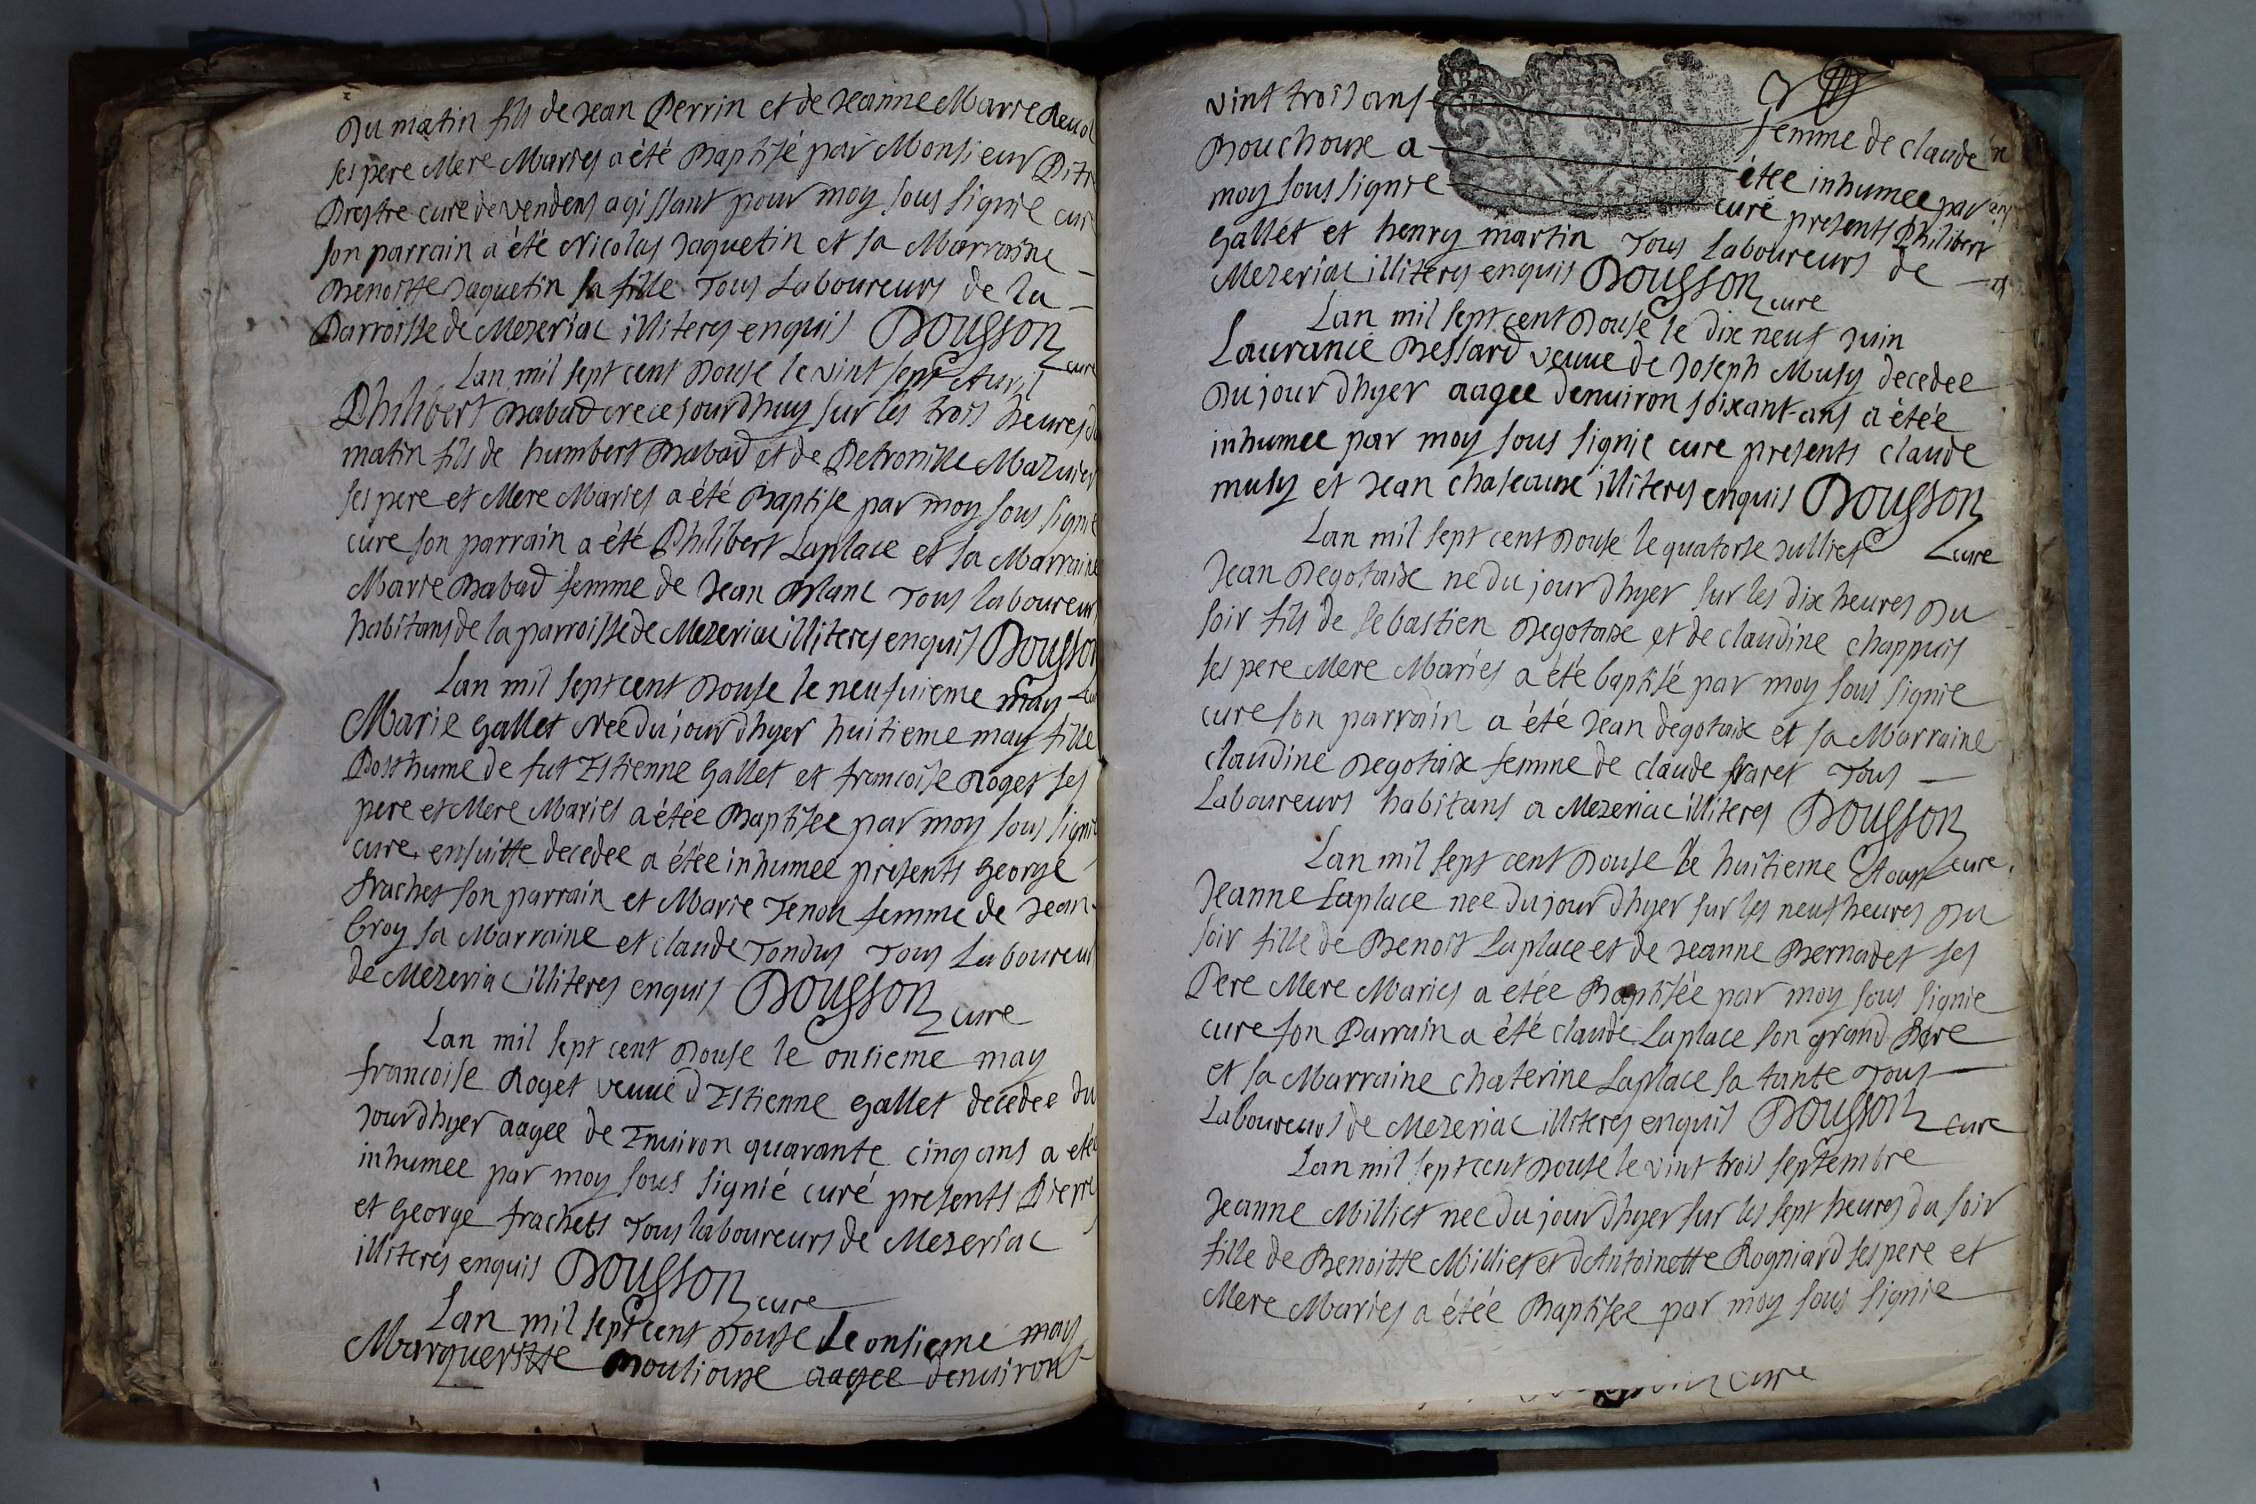 Du matin fils de Jean Perrin et de Jeanne Marie
ses pere Mere Maries a été Baptisé par Monsieur
Prestre cure de Vendens agissant pour moy sous signie cure
son parrain a été Nicolas Jaquetin et sa Marraine
Benoitte Jaquetin sa fille Tous Laboureurs de la
Parroisse de Mezeriac illiteres enquis Dousson cure
Lan mil sept cent Douse le vint sept Avril
Philibert Babad ce jourdhuy sur les trois heures du
matin fils de humbert Babad et de Petronille Mazuier
ses pere et Mere Maries a été Baptise par moy sous signie
cure son parrain a été Philibert Laplace et sa Marraine
Marie Babad femme de Jean Tous laboureurs
habitans de la parroisse de Mezeriac illiteres enquis Dousson
Lan mil sept cent Douse le neufvieme may cure
Marie Gallet Nee du jour dhyer huitieme may fille
Posthume de fut Estienne Gallet et francoise Roget ses
pere et Mere Maries a étée Baptisee par moy sous signie
cure, ensuitte decedee a étée inhumee presents George
frachet son parrain et Marie Tenon femme de Jean
broy sa Marraine et claude Tondus Tous Laboureurs
de Mezeriac illiteres enquis Dousson cure
Lan mil sept cent Douse le onsieme may
francoise Roget veuve d Estienne Gallet decedee du
Jour dhyer aagee de Environ quarante cinq ans a etée
inhumee par moy sous signié curé presents Pierre
et George frachets Tous laboureurs de Meseriac
illiteres enquis Dousson cure
Lan mil sept cent Douse Le onsieme may
Margueritte Moulioux aagee denviron
vint trois ans femme de claude
Bouchoux a étée inhumee par
moy sous signie curé presents Philibert
Gallet et henry martin Tous Laboureurs de
Mezeriac illiteres enquis Dousson cure
Lan mil sept cent Douse le dix neuf Juin
Laurance Bessard veuve de Joseph Musy decedee
Du jour dhyer aagee denviron soixant ans a étée
inhumee par moy sous signie cure presents claude
musy et Jean illiteres enquis Dousson
Lan mil sept cent Douse le quatorse Julliet cure
Jean Degotaix ne du jour dhyer sur les dix heures Du
soir fils de Sebastien Degotaix et de claudine chappuis
ses pere Mere Maries a été baptisé par moy sous signie
cure son parrain a été Jean degotaix et sa Marraine
claudine Degotaix femme de claude Tous
Laboureurs habitans a Mezeriac illiteres Dousson
Lan mil sept cent Douse le huitieme Aoust cure.
Jeanne Laplace nee du jour dhyer sur les neuf heures Du
soir fille de Benoit Laplace et de Jeanne Bernadet ses
Pere Mere Maries a etée Baptisée par moy sous signie
cure son Parrain a été claude Laplace son grand Pere
et sa Marraine chaterine Laplace sa tante Tous
Laboureurs de Mezeriac illiteres enquis Dousson cure
Lan mil sept cent Douse le vint trois septembre
Jeanne Milliet nee du jour dhyer sur les sept heures du soir
fille de Benoitte Milliet et dAntoinette Rogniard ses pere et
Mere Maries a étée Baptisee par moy sous signie
cure